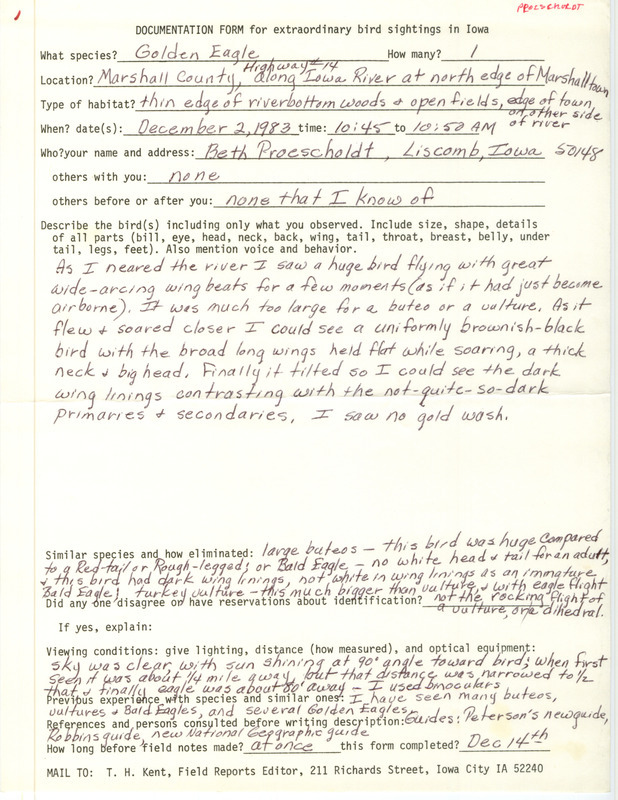 PROESCHOLDT
DOCUMENTATION FORM for extraordinary bird sightings in Iowa
What species? Golden Eagle How many? 1
Highway #14
Location? Marshall County, along Iowa River at north edge of Marshalltown
Type of habitat? thin edge of riverbottom woods & open fields, edge of town,
on other side
of river
When? date(s): December 2, 1983 time: 10:45 to 10:50 AM
Who? your name and address: Beth Proescholdt, Liscomb, Iowa 50148
others with you: none
others before or after you: none that I know of
Describe the bird(s) including only what you observed. Include size, shape, details
of all parts (bill, eye, head, neck, back, wing, tail, throat, breast, belly, under
tail, legs, feet). Also mention voice and behavior.
As I neared the river I saw a huge bird flying with great
wide-arcing wing beats for a few moments (as if it had just become
airborne). It was much too large for a buteo or a vulture. As it
flew & soared closer I could see a uniformly brownish-black
bird with the broad long wings held flat while soaring, a thick
neck & big head. Finally it tilted so I could see the dark
wing linings contrasting with the not-quite-so-dark
primaries & secondaries. I saw no gold wash.
Similar species and how eliminated: large buteos - this bird was huge compared
to a Red-tail or Rough-legged; or Bald Eagle - no white head & tail for an adult,
& this bird had dark wing linings, not white in wing linings as an immature
Bald Eagle; turkey vulture - this much bigger than vulture, & with eagle flight
Did any one disagree or have reservations about identification? not the rocking flight of
a vulture, or a dihedral.
If yes, explain:
Viewing conditions: give lighting, distance (how measured), and optical equipment:
sky was clear with sun shining at 90° angle toward bird; when first
seen it was about 1/4 mile away, but that distance was narrowed to 1/2
that & finally eagle was about 80' away - I used binoculars
Previous experience with species and similar ones: I have seen many buteos,
vultures & Bald Eagles, and several Golden Eagles.
References and persons consulted before writing description: Guides: Peterson's new guide,
Robbins guide, new National Geographic guide
How long before field notes made? at once this form completed? Dec 14th
MAIL TO: T. H. Kent, Field Reports Editor, 211 Richards Street, Iowa City IA 52240